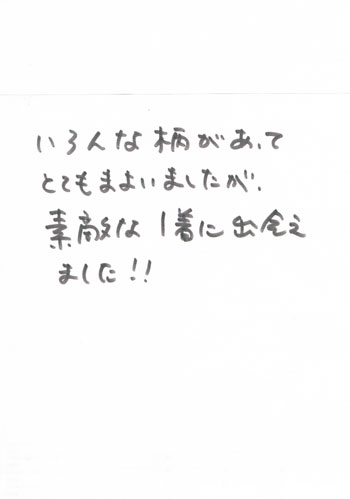 いろんな柄があって
とてもまよいましたが、
素敵な1着に出会え
ました!!